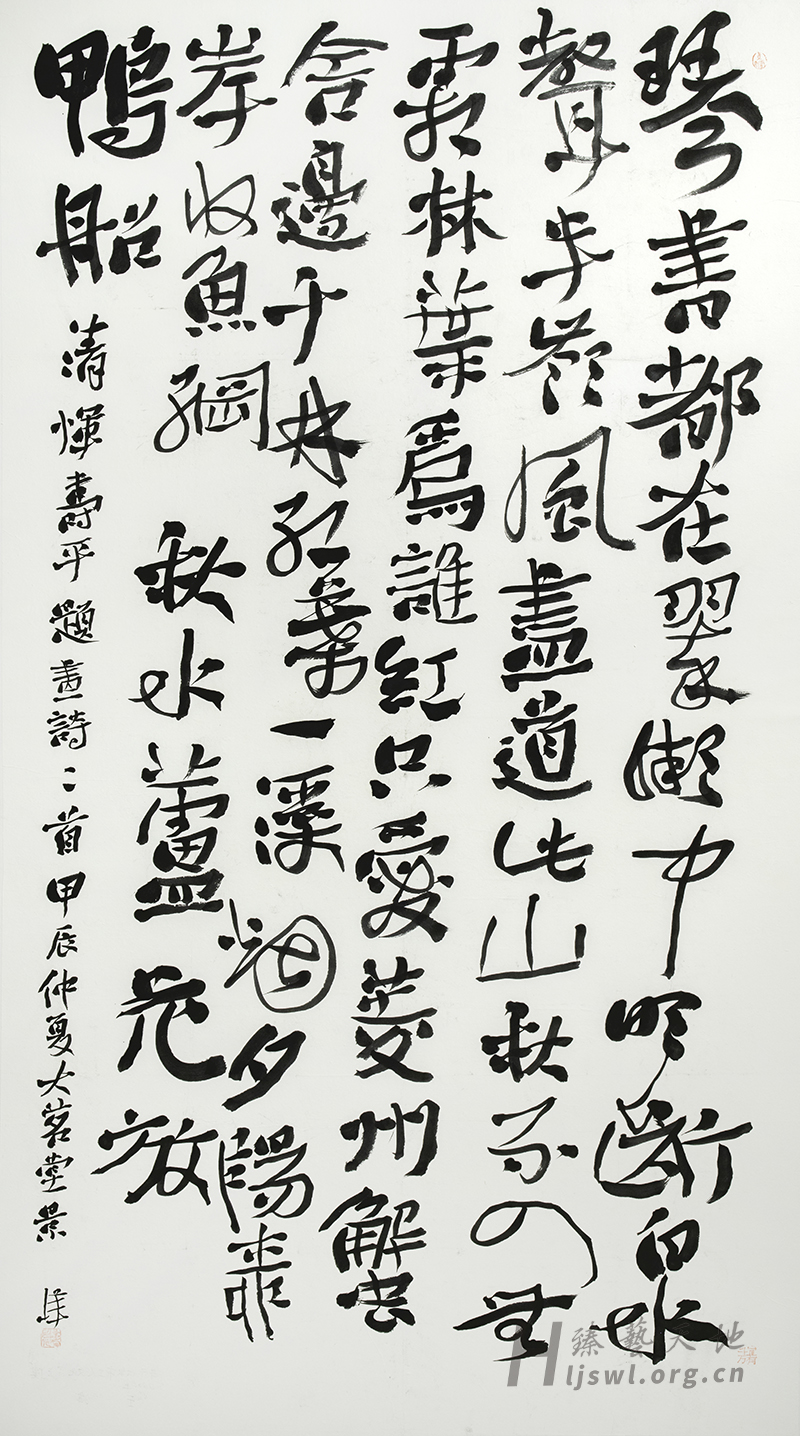 琴書都在翠微中吟斷泉
聲半嶺風盡道此山秋不無
霜林葉為誰紅只愛菱州蟹
舍邊千林紅葉一溪烟夕陽
岸收魚網秋水蘆花放
鴨船
清惲壽平題畫詩二首甲辰仲夏大茗堂景
臻藝天地
Hljswl.org.cn